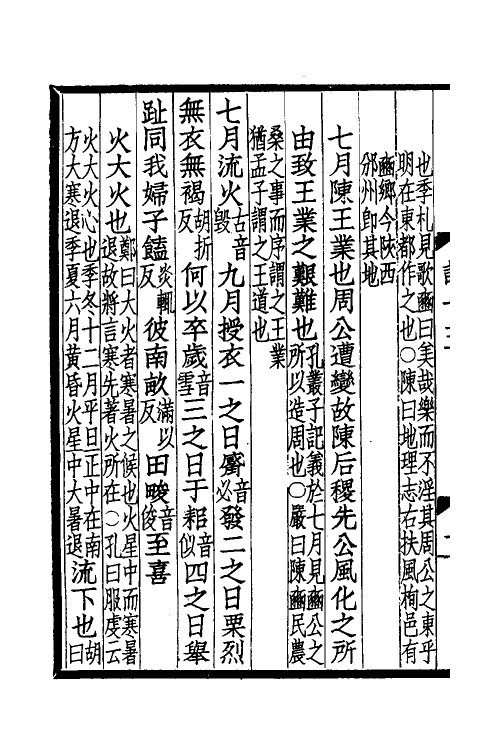 也季札見歌豳曰美哉樂而不淫其周公之東乎
明在東都作之也○陳曰地理志右扶風栒邑有
豳鄉今陝西
邠州即其地
七月陳王業也周公遭變故陳后稷先公風化之所
由致王業之艱難也孔叢子記義於七月見豳公之
所以造周也○嚴曰陳豳民農
桑之事而序謂之王業
猶孟子謂之王道也
七月流火古音
毀九月授衣一之日觱音
必發二之日栗烈
無衣無褐胡折
反何以卒歲音
雪三之日于耜音
似四之日舉
趾同我婦子饁炎輒
反彼南畝滿以
反田畯音
俊至喜
火大火也鄭曰大火者寒暑之候也火星中而寒暑
退故將言寒先著火所在○孔曰服虔云
火大火心也季冬十二月平旦正中在南
方大寒退季夏六月黃昏火星中大暑退流下也胡
曰